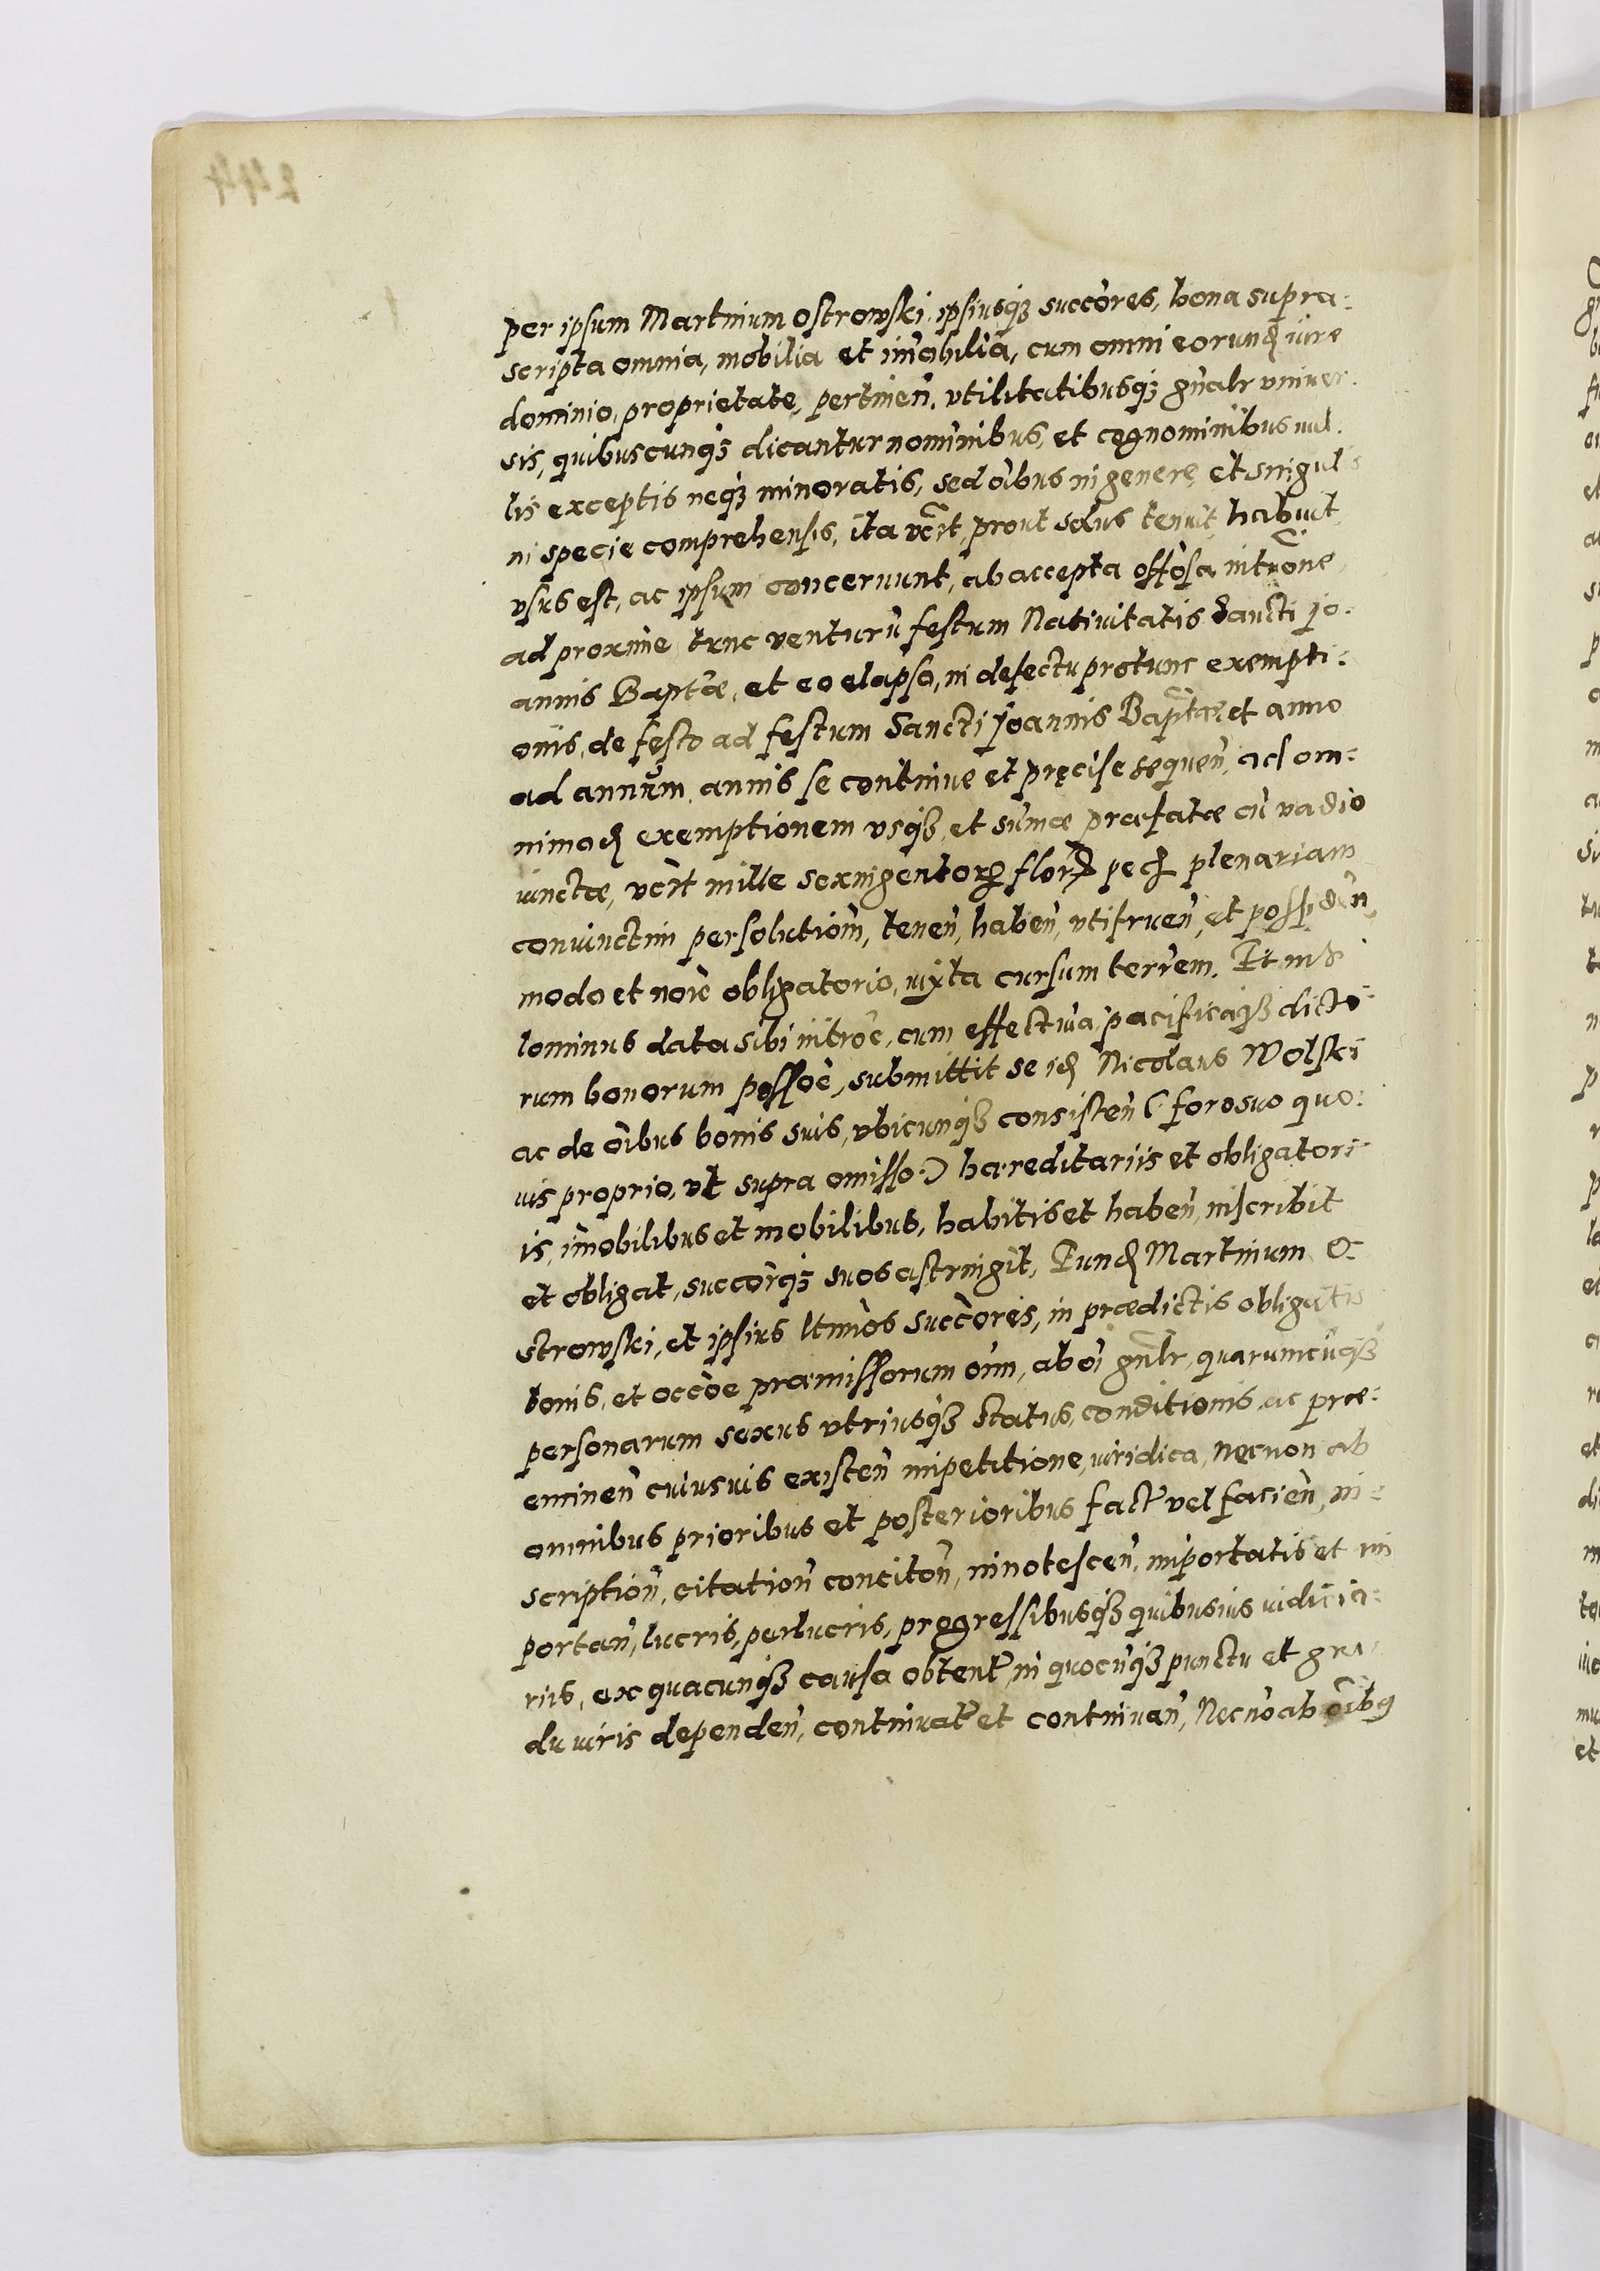 per ipsum Martinum Ostrowski, ipsiusqꝫ succores, bona supra-
scripta omnia, mobilia et imobilia, cum omni eorund iure
dominio, proprietate, pertinen, vtilitatibusqꝫ gnalr vniuer-
sis, quibuscunqꝫ dicantur nominibus, et cognominibus nul-
lis exceptis neqꝫ minoratis, sed oibus in genere, et singulis
in specie comprehensis, ita vert, prout solus tenuit, habuit,
vsus est, ac ipsum concernunt, ab accepta offosa intrõne
ad proxime tunc venturũ festum Natiuitatis Sancti Jo-
annis Baptæ, et eo elapso, in defectu protunc exempti-
onis, de festo ad festum Sancti Joannis Baptæ, et anno
ad annum, annis se continue et pręcise sequen, ad om-
nimod exemptionem vsqꝫ, et sumæ præfatæ cũ vadio
iunctæ, vert mille sexingentorꝝ flor pech plenariam
coniunctim persolutiom, tenen, haben, vtifruen, et possiden,
modo et noie obligatorio, iuxta cursum terrem. Et nihi-
lominus data sibi introe, cum effectiua, pacificaqꝫ dicto-
rum bonorum possoe, submittit se id Nicolaus Wolski
ac de oibus bonis suis, vbicunqꝫ consisten (foro suo quo-
uis proprio, vt supra omisso.) hæreditariis et obligatori-
is, imobilibus et mobilibus, habitis et haben, inscribit
et obligat, succorqꝫ suos astringit, Eund Martinum O-
strowski, et ipsius ltimos succores, in prædictis obligatis
bonis, et occoe præmissorum oim, ab oi gnlr, quarumcũqꝫ
personarum sexus vtriusqꝫ status, conditionis, ac præ-
eminen cuiusuis existen impetitione, iuridica, necnon ab
omnibus prioribus et posterioribus fact vel facien, in-
scription, citation conciton, innotescen, importatis et im
portan, lucris, perlucris, progressibusqꝫ quibusuis iudicia-
riis, ex quacunqꝫ causa obtent, in quocũqꝫ punctu et gra-
du iuris dependen, continuat et continuan, Necnõ ab oibꝯ